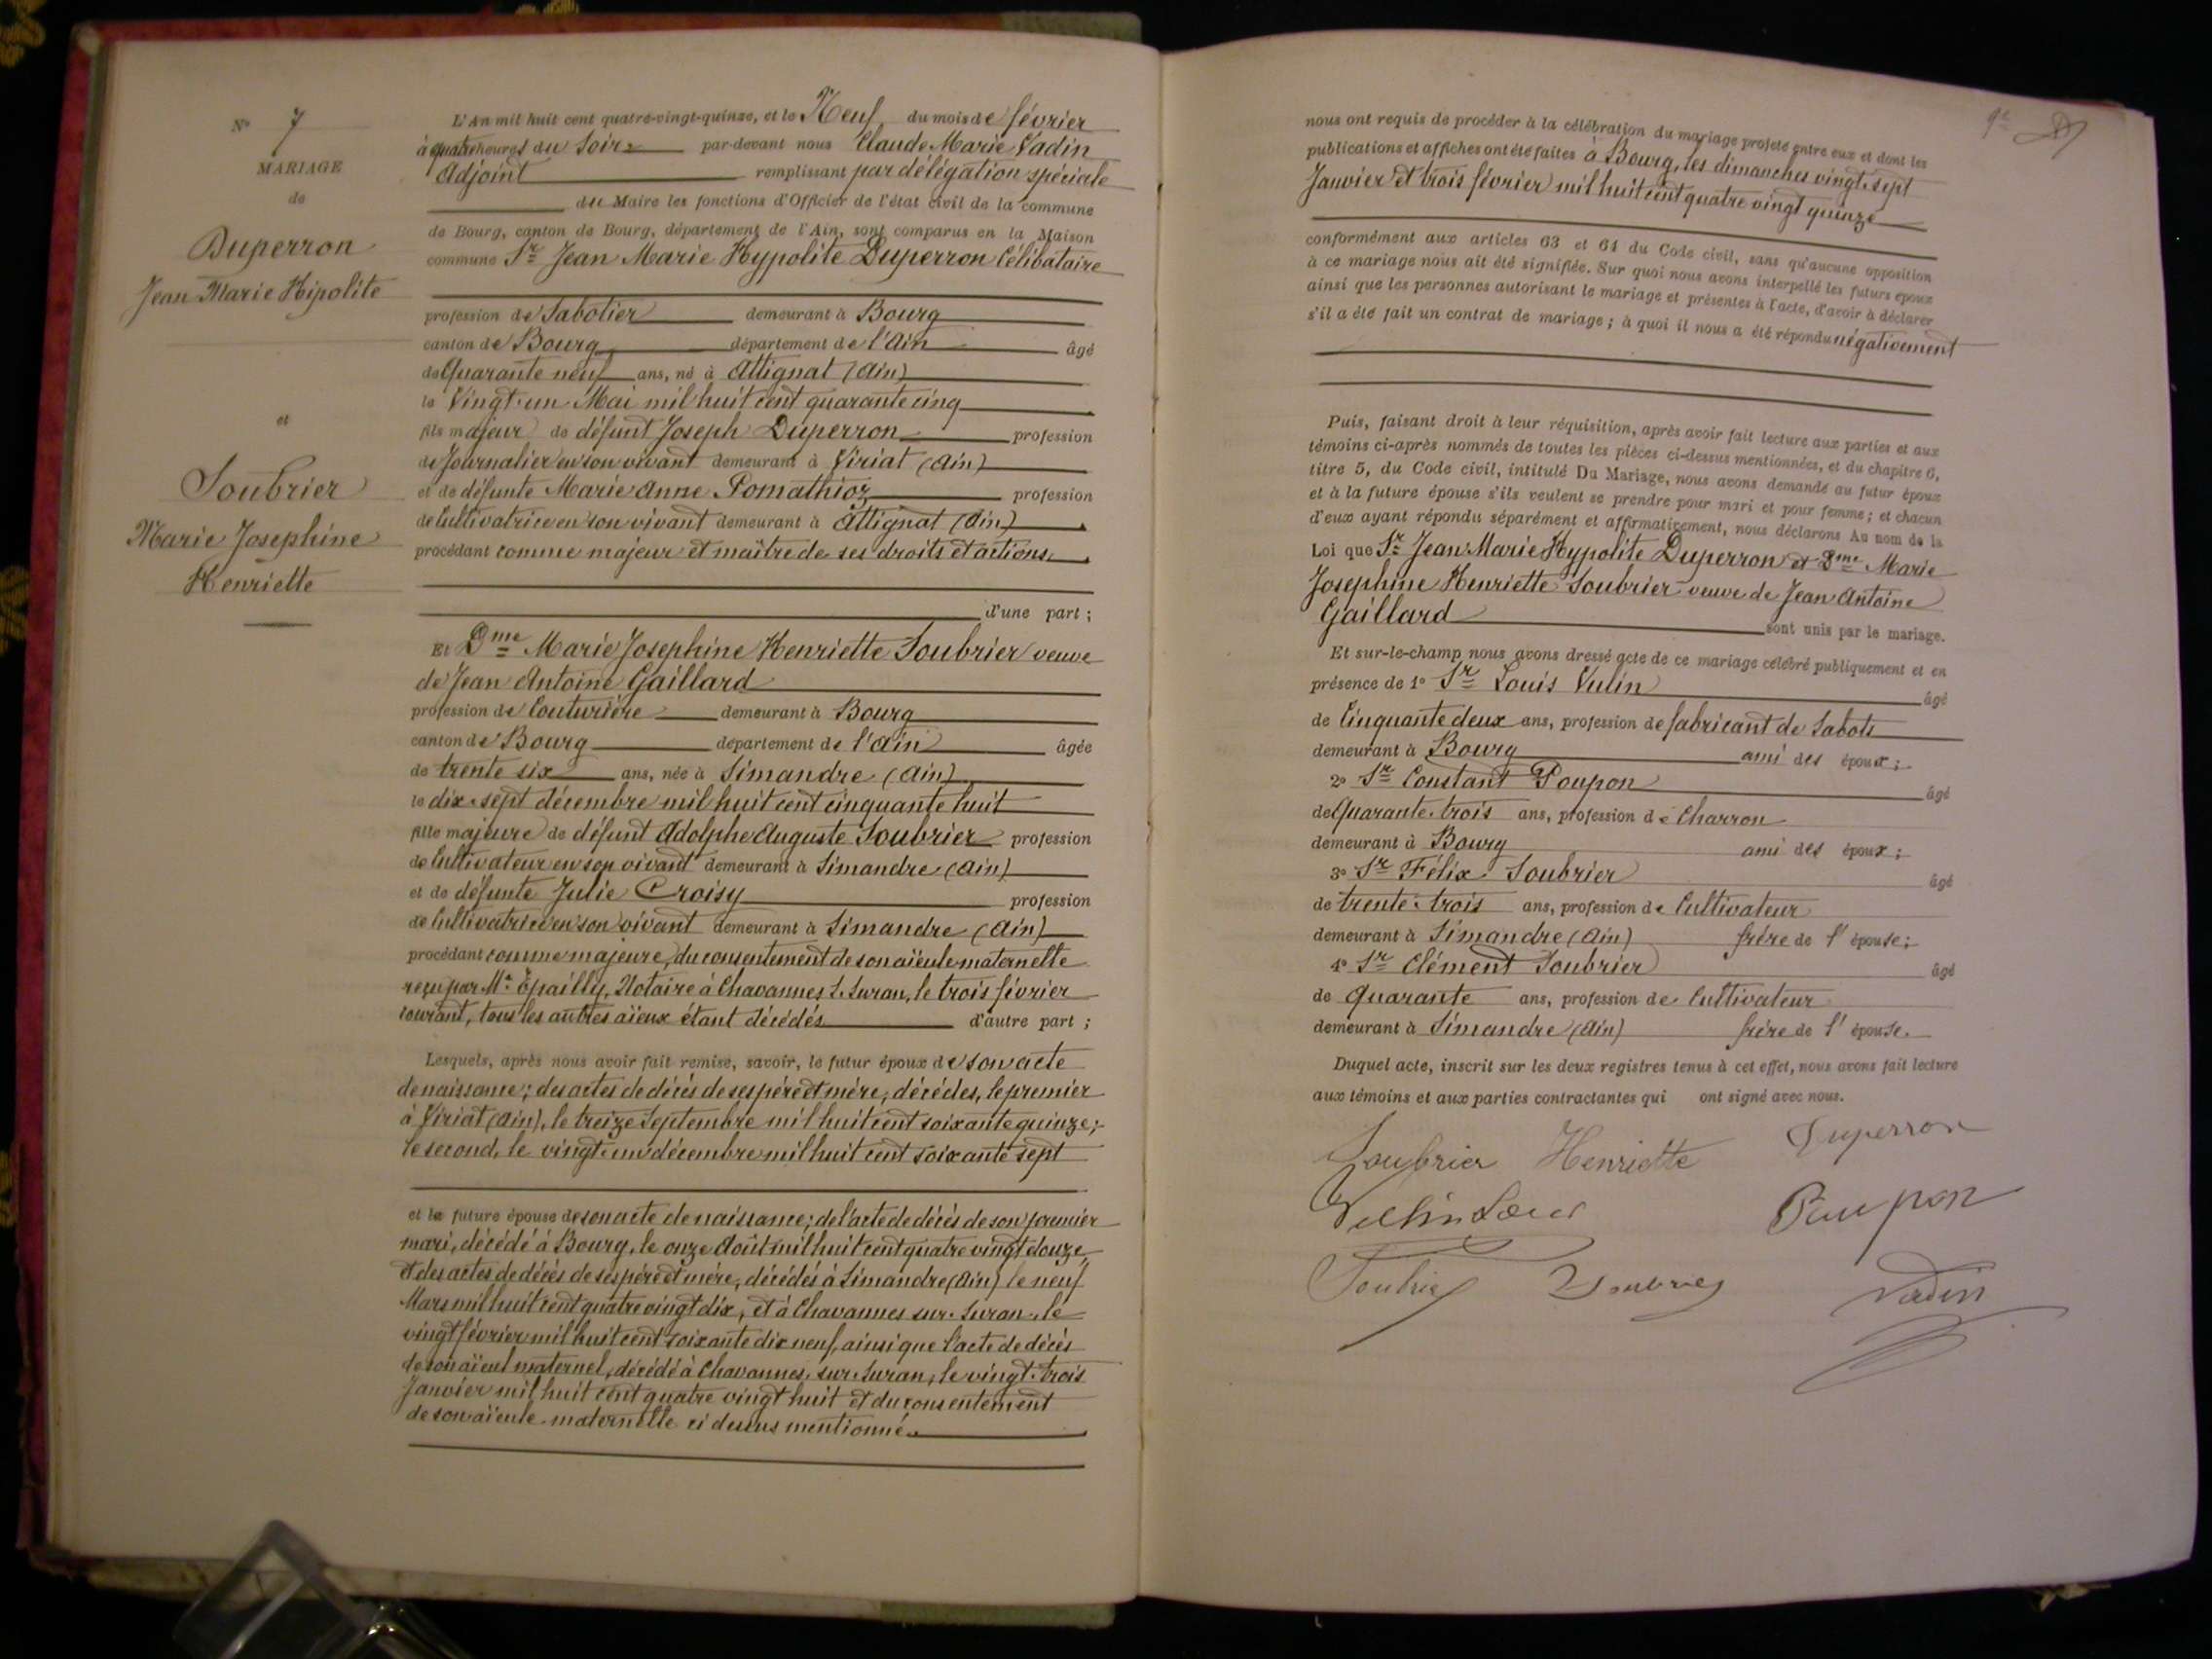 N° 7
MARIAGE
de
Duperron
Jean Marie Hipolite
et
Soubrier
Marie Josephine
Henriette
L'An mil huit cent quatre-vingt-quinze, et le Neuf du mois de février
à quatre heures du soir par-devant nous Claude Marie Vadin
Adjoint remplissant par délégation spéciale
du Maire les fonctions d'Officier de l'état civil de la commune
de Bourg, canton de Bourg, département de l'Ain, sont comparus en la Maison
commune Sr Jean Marie Hypolite Duperron Célibataire
profession de Sabotier demeurant à Bourg
canton de Bourg département de l'Ain âgé
de Quarante neuf ans, né à Attignat (Ain)
le Vingt-un Mai mil huit cent quarante cinq
fils majeur de défunt Joseph Duperron profession
de Journalier en son vivant demeurant à Viriat (Ain)
et de défunte Marie Anne Pomathioz profession
de Cultivatrice en son vivant demeurant à Attignat (Ain)
procédant comme majeur et maître de ses droits et actions.
d'une part ;
Et Dme Marie Josephine Henriette Soubrier veuve
de Jean Antoine Gaillard
profession de Couturière demeurant à Bourg
canton de Bourg département de l'Ain âgée
de trente six ans, née à Simandre (Ain)
le dix-sept décembre mil huit cent cinquante huit
fille majeure de défunt Adolphe Auguste Soubrier profession
de Cultivateur en son vivant demeurant à Simandre (Ain)
et de défunte Julie Croisy profession
de Cultivatrice en son vivant demeurant à Simandre (Ain)
procédant comme majeure, du consentement de son aïeule maternelle
reçu par Me Epailly, Notaire à Chavannes s. Suran, le trois février
courant, tous les autres aïeux étant décédés d'autre part ;
Lesquels, après nous avoir fait remise, savoir, le futur époux de son acte
de naissance ; des actes de décès de ses père et mère, décédés, le premier
à Viriat (Ain), le treize Septembre mil huit cent soixante quinze ;
le second, le vingt-un décembre mil huit cent soixante sept
et la future épouse de son acte de naissance ; de l'acte de décès de son premier
mari, décédé à Bourg, le onze Août mil huit cent quatre vingt douze,
et des actes de décès de ses père et mère, décédés à Simandre (Ain) le neuf
Mars mil huit cent quatre vingt dix, et à Chavannes sur Suran, le
vingt février mil huit cent soixante dix neuf, ainsi que l'acte de décès
de son aïeul maternel, décédé à Chavannes sur Suran, le vingt-trois
Janvier mil huit cent quatre vingt huit et du consentement
de son aïeule maternelle ci dessus mentionné.
nous ont requis de procéder à la célébration du mariage projeté entre eux et dont les
publications et affiches ont été faites à Bourg, les dimanches vingt-sept
Janvier et trois février mil huit cent quatre vingt quinze
conformément aux articles 63 et 64 du Code civil, sans qu'aucune opposition
à ce mariage nous ait été signifiée. Sur quoi nous avons interpellé les futurs époux
ainsi que les personnes autorisant le mariage et présentes à l'acte, d'avoir à déclarer
s'il a été fait un contrat de mariage ; à quoi il nous a été répondu négativement
Puis, faisant droit à leur réquisition, après avoir fait lecture aux parties et aux
témoins ci-après nommés de toutes les pièces ci-dessus mentionnées, et du chapitre 6,
titre 5, du Code civil, intitulé Du Mariage, nous avons demandé au futur époux
et à la future épouse s'ils veulent se prendre pour mari et pour femme ; et chacun
d'eux ayant répondu séparément et affirmativement, nous déclarons Au nom de la
Loi que Sr Jean Marie Hypolite Duperron et Dme Marie
Josephine Henriette Soubrier veuve de Jean Antoine
Gaillard sont unis par le mariage.
Et sur-le-champ nous avons dressé acte de ce mariage célébré publiquement et en
présence de 1° Sr Louis Vulin âgé
de Cinquante deux ans, profession de fabricant de Sabots
demeurant à Bourg ami des époux ;
2° Sr Constant Poupon âgé
de Quarante-trois ans, profession de Charron
demeurant à Bourg ami des époux ;
3° Sr Félix Soubrier âgé
de trente-trois ans, profession de Cultivateur
demeurant à Simandre (Ain) frère de l'épouse ;
4° Sr Clément Soubrier âgé
de Quarante ans, profession de Cultivateur
demeurant à Simandre (Ain) frère de l'épouse.
Duquel acte, inscrit sur les deux registres tenus à cet effet, nous avons fait lecture
aux témoins et aux parties contractantes qui ont signé avec nous.
Soubrier Henriette Duperron
Vulin Louis Poupon
Soubrier Soubrier Vadin